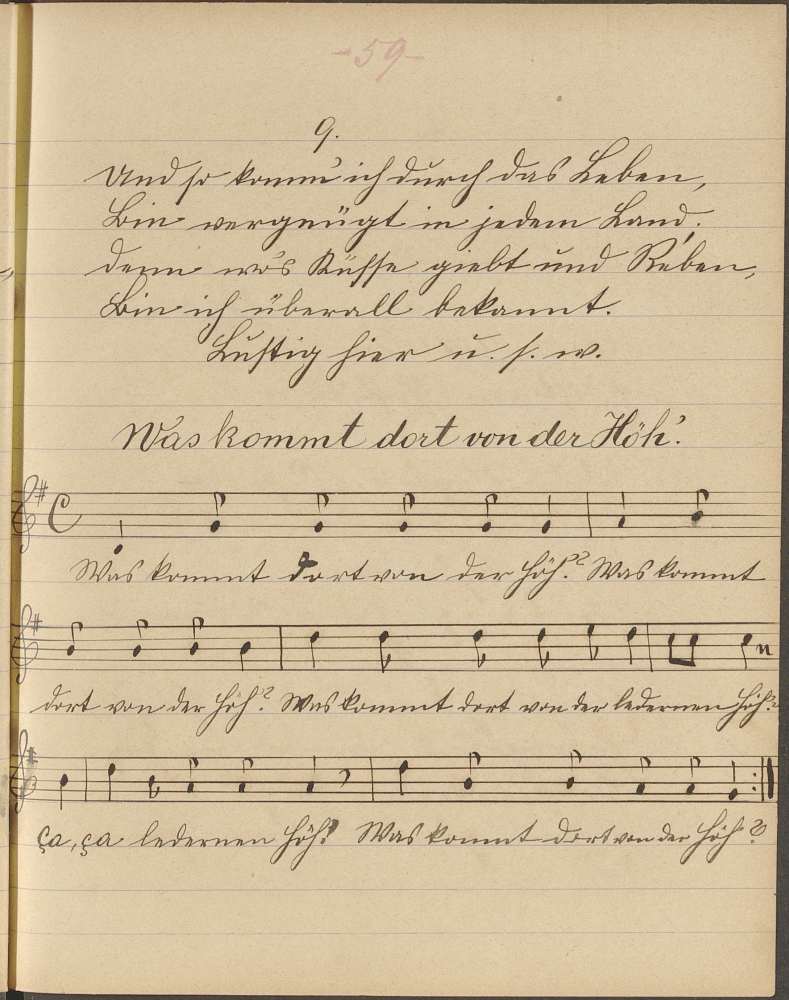 -59-
9.
Und so komm' ich durch das Leben,
Bin vergnügt in jedem Land;
denn wo's Küsse giebt und Reben,
Bin ich überall bekannt.
Lustig hier u. s. w.
Was kommt dort von der Höh'.
Was kommt dort von der Höh'? Was kommt
dort von der Höh'? Was kommt dort von der ledernen Höh'?
ça, ça ledernen Höh'! Was kommt dort von der Höh'?